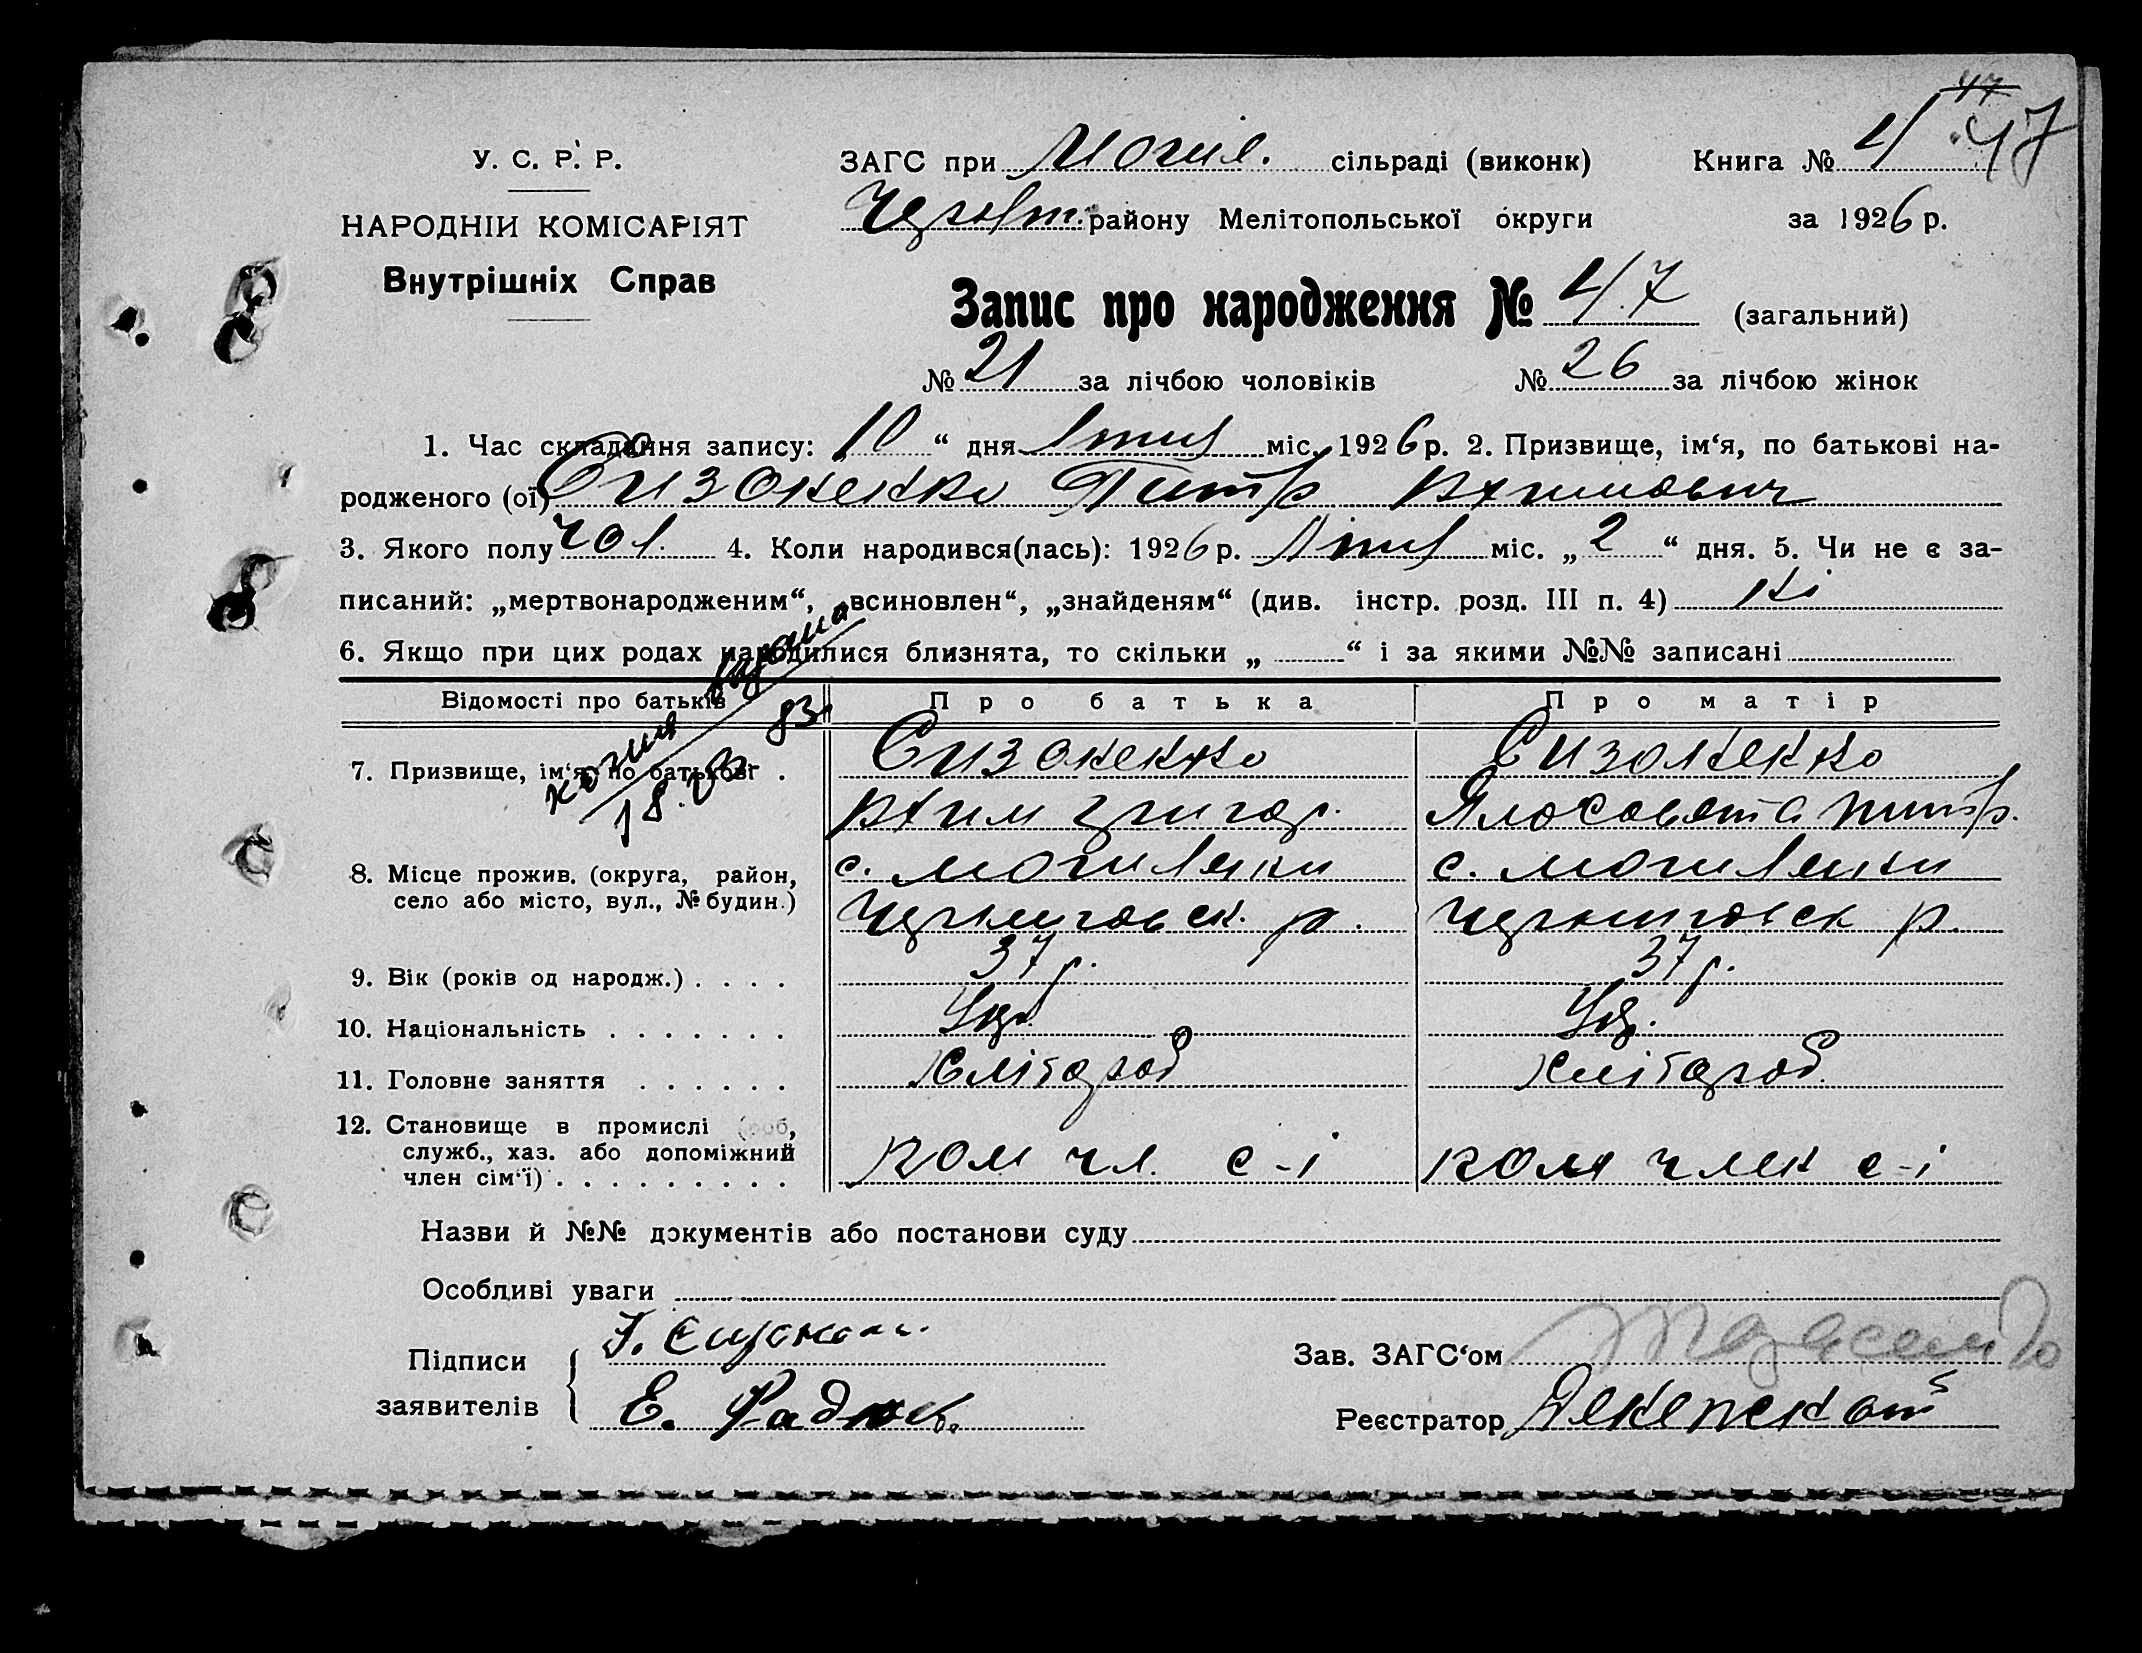 47
У. С. Р. Р.
ЗАГС при Могил. сільраді (виконк) Книга № 4 47
НАРОДНІЙ КОМІСАРІЯТ
району Мелітопольської округи за 1926 р.
Внутрішніх Справ
Запис про народження № 47 (загальний)
№ 21 за лічбою чоловіків № 26 за лічбою жінок
1. Час складання запису: „10“ дня Лютий міс. 1926 р. 2. Призвище, ім‘я, по батькові на-
родженого (ої) Сизоненко Питр Яхимович
3. Якого полу чол. 4. Коли народився(лась): 1926 р. Лютий міс. „2“ дня. 5. Чи не є за-
писаний: „мертвонародженим“, „всиновлен“, „знайденям“ (див. інстр. розд. III п. 4) Ні
6. Якщо при цих родах народилися близнята, то скільки „ “ і за якими №№ записані
копия видана
18. 03 83
Відомості про батьків Про батька Про матір
7. Призвище, ім‘я, по батькові . Сизоненко Сизоненко
Яхим Григор. Питр.
8. Місце прожив. (округа, район, село або місто, вул., № будин.) с. Могиляни с. Могиляни
Черниговск. р. Черниговск р.
9. Вік (років од народж.) . . . . 37 р. 37 р.
10. Національність . . . . . . . Укр. Укр.
11. Головне заняття . . . . . . Хлібороб Хлібороб
12. Становище в промислі (роб, служб., хаз. або допоміжний член сім‘ї) . . . . . . . . . пом чл. с-і пом член с-і
Назви й №№ документів або постанови суду
Особливі уваги
Підписи
Зав. ЗАГС‘ом
заявителів Е.
Реєстратор